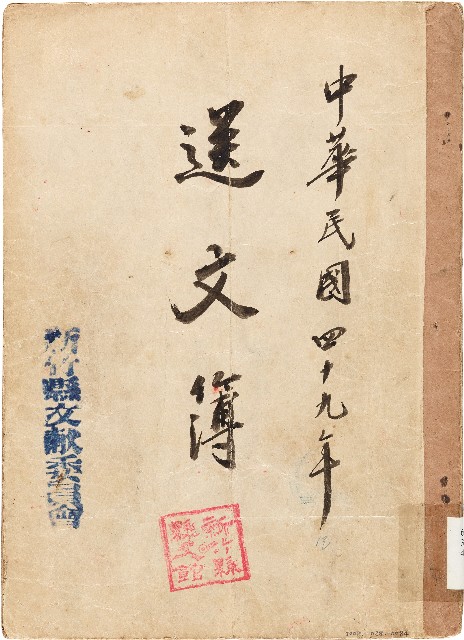 中華民國四十九年
送文簿
新竹縣文獻委員會
新竹縣
文館